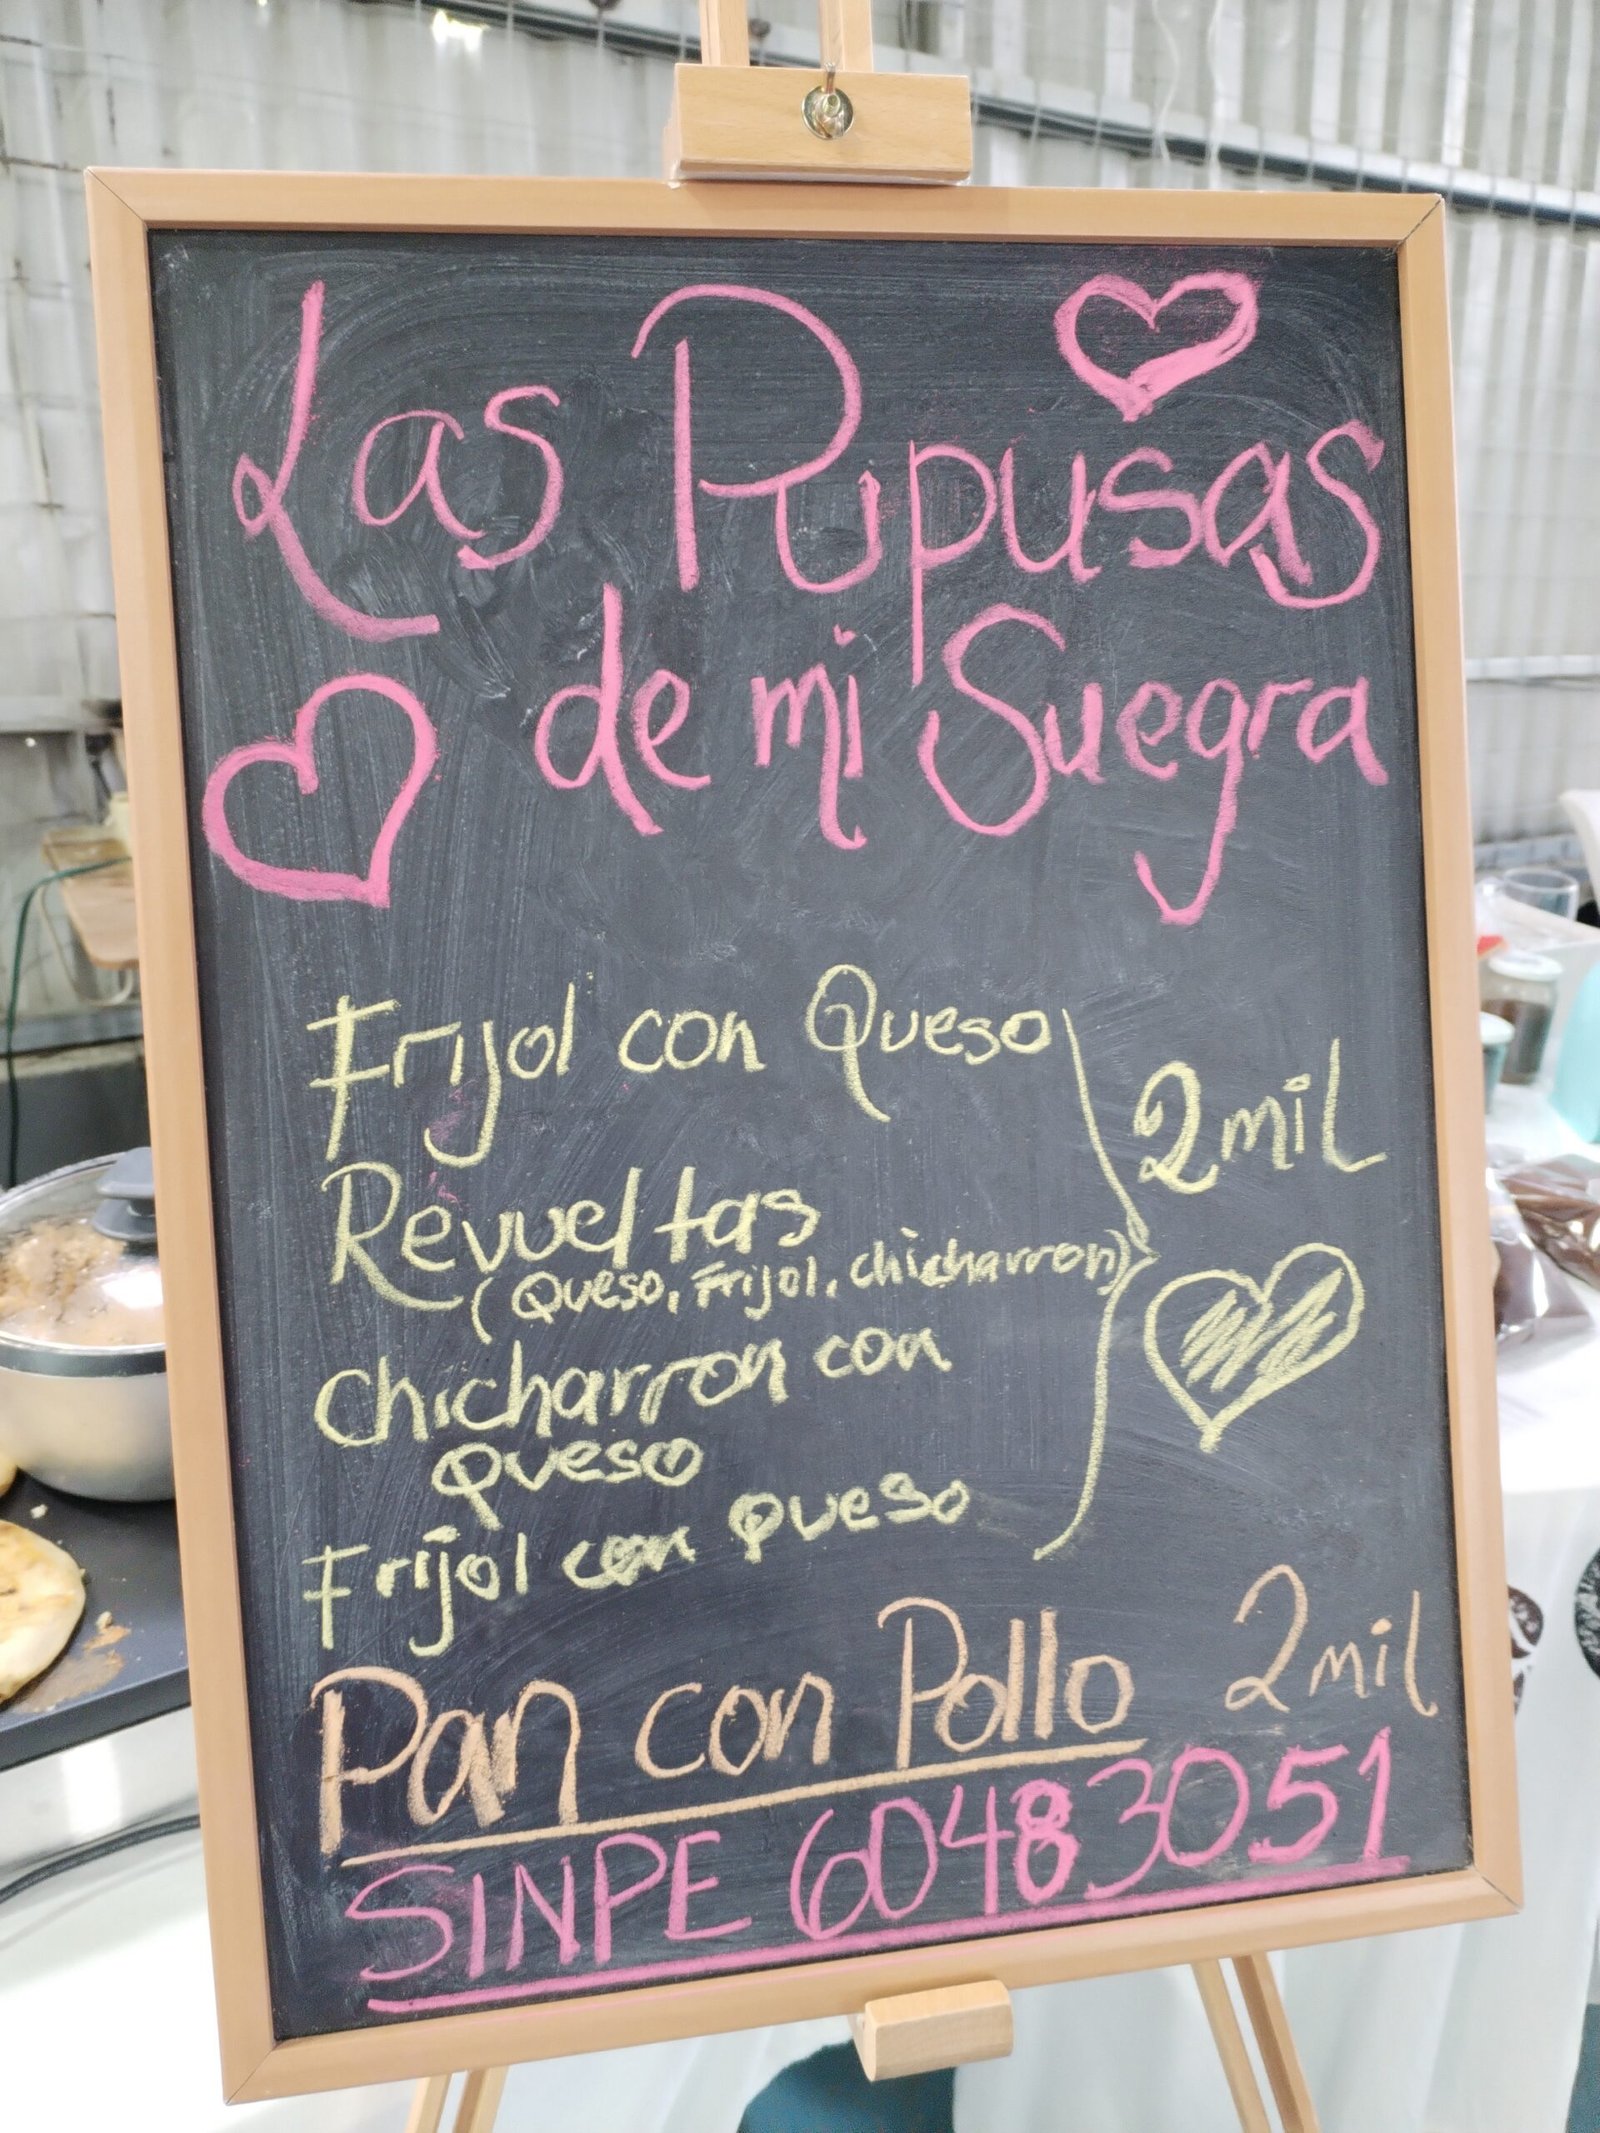 Las Pupusas
de mi Suegra
Frijol con Queso
2 mil
Revueltas
(Queso, Frijol, chicharron)
chicharron con
Queso
Frijol con Queso
Pan con Pollo 2 mil
SINPE 60483051